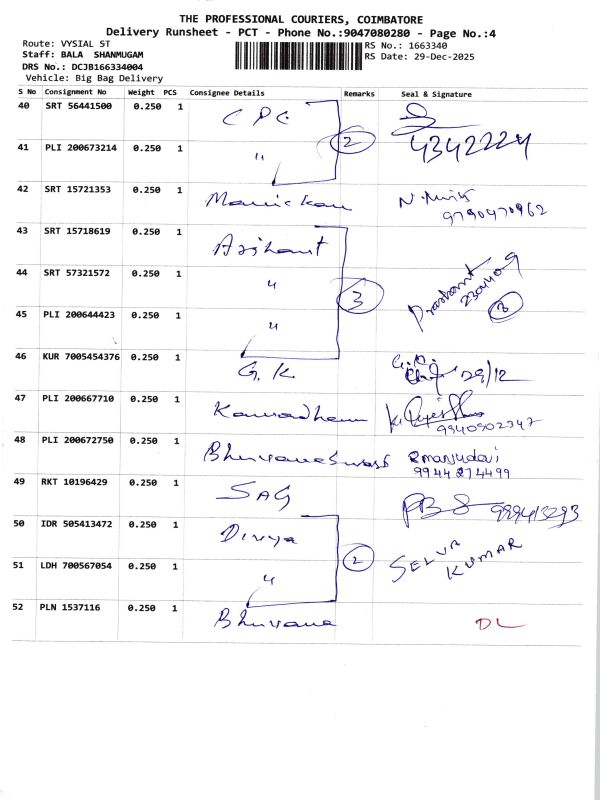 THE PROFESSIONAL COURIERS, COIMBATORE
Delivery Runsheet - PCT - Phone No.:9047080280 - Page No.:4
Route: VYSIAL ST
RS No.: 1663340
Staff: BALA SHANMUGAM
RS Date: 29-Dec-2025
DRS No.: DCJB166334004
Vehicle: Big Bag Delivery
S No Consignment No Weight PCS Consignee Details Remarks Seal & Signature
40 SRT 56441500 0.250 1 CPC
41 PLI 200673214 0.250 1 " 2 4342224
42 SRT 15721353 0.250 1 Manickam 9790470962
43 SRT 15718619 0.250 1 Arihant
44 SRT 57321572 0.250 1 " 3 Prashant
45 PLI 200644423 0.250 1 " 3
46 KUR 7005454376 0.250 1 G.K 29/12
47 PLI 200667710 0.250 1 9940502347
48 PLI 200672750 0.250 1 Bhuvaneswari Rmanjudevi
9944274499
49 RKT 10196429 0.250 1 SAG
50 IDR 505413472 0.250 1 Divya
51 LDH 700567054 0.250 1 " 2 SELVA
KUMAR
52 PLN 1537116 0.250 1 Bhuvana DL